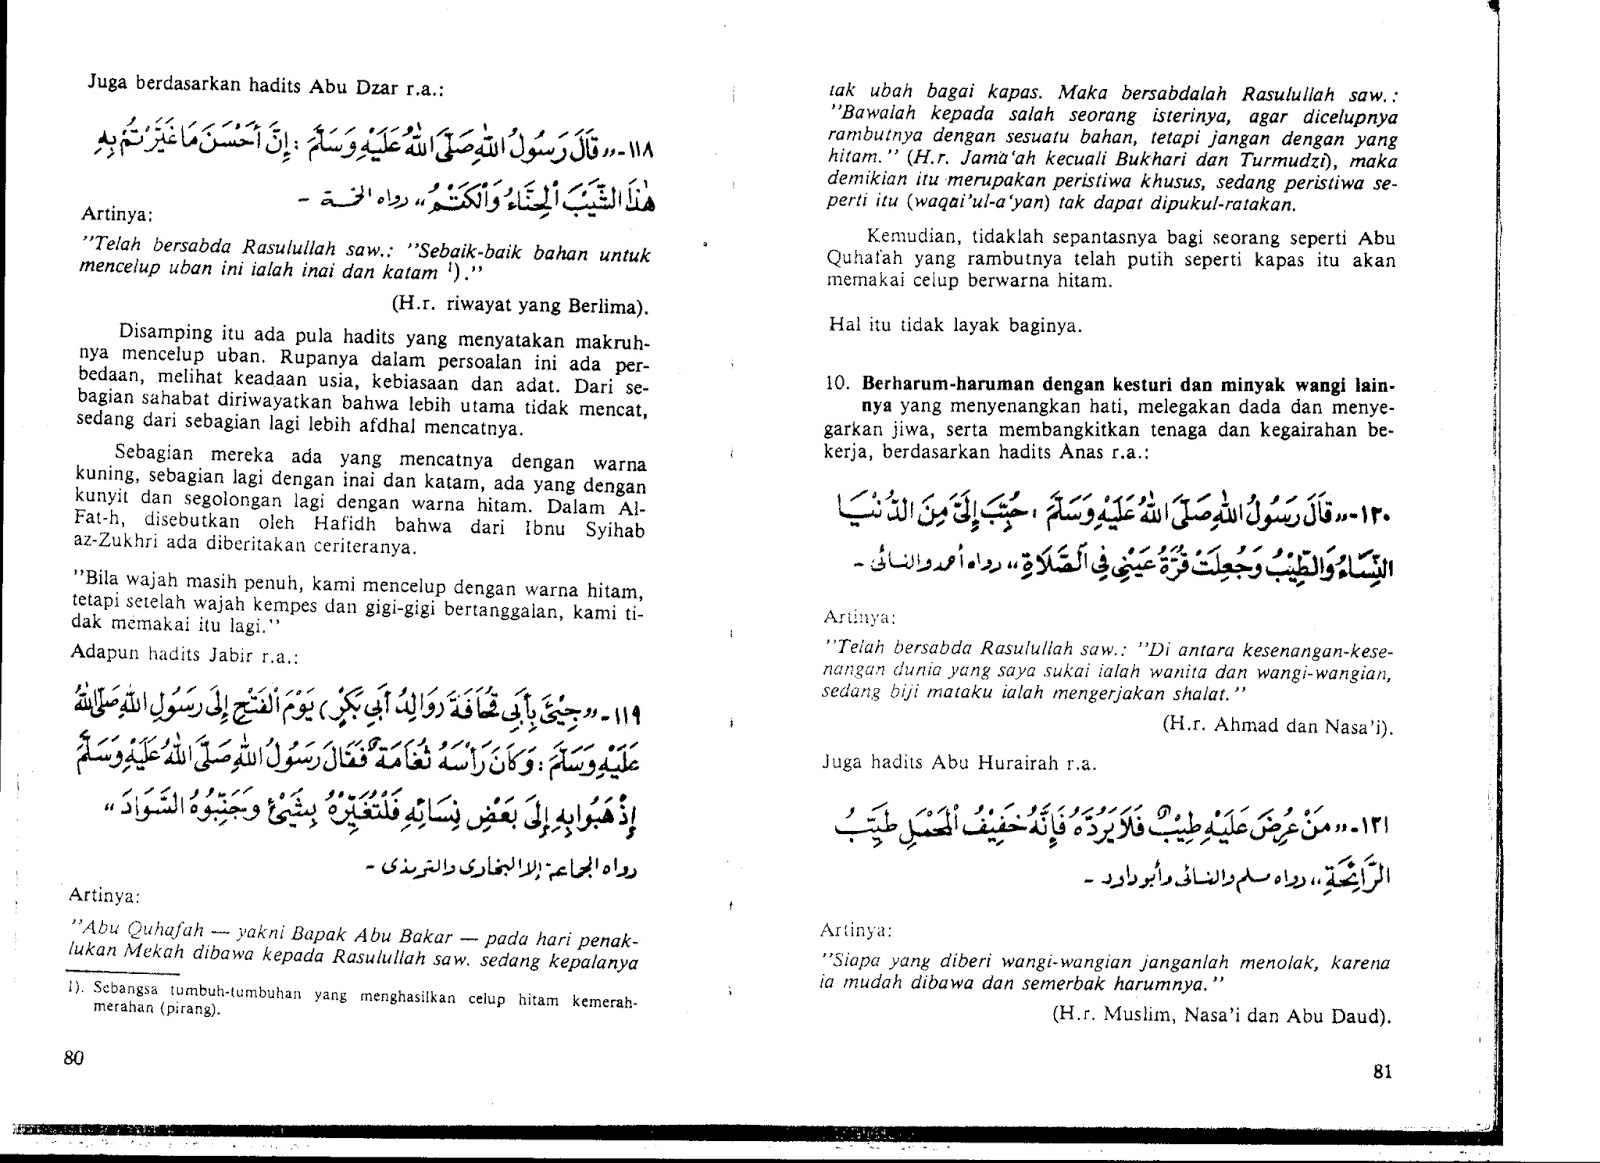 Juga berdasarkan hadits Abu Dzar r.a.:
١١٨-,, قَالَ رَسُولُ اللهِ صَلَّى اللهُ عَلَيْهِ وَسَلَّمَ : إِنَّ أَحْسَنَ مَا غَيَّرْتُمْ بِهِ
هٰذَا الشَّيْبَ الْحِنَّاءُ وَالْكَتَمُ ,, رواه الخمسة -
Artinya:
''Telah bersabda Rasulullah saw.: ''Sebaik-baik bahan untuk
mencelup uban ini ialah inai dan katam ¹).''
(H.r. riwayat yang Berlima).
Disamping itu ada pula hadits yang menyatakan makruh-
nya mencelup uban. Rupanya dalam persoalan ini ada per-
bedaan, melihat keadaan usia, kebiasaan dan adat. Dari se-
bagian sahabat diriwayatkan bahwa lebih utama tidak mencat,
sedang dari sebagian lagi lebih afdhal mencatnya.
Sebagian mereka ada yang mencatnya dengan warna
kuning, sebagian lagi dengan inai dan katam, ada yang dengan
kunyit dan segolongan lagi dengan warna hitam. Dalam Al-
Fat-h, disebutkan oleh Hafidh bahwa dari Ibnu Syihab
az-Zukhri ada diberitakan ceriteranya.
''Bila wajah masih penuh, kami mencelup dengan warna hitam,
tetapi setelah wajah kempes dan gigi-gigi bertanggalan, kami ti-
dak memakai itu lagi.''
Adapun hadits Jabir r.a.:
١١٩-,, جِيْئَ بِأَبِي قُحَافَةَ (وَالِدُ أَبِي بَكْرٍ) يَوْمَ الْفَتْحِ إِلَى رَسُولِ اللهِ صَلَّى اللهُ
عَلَيْهِ وَسَلَّمَ : وَكَانَ رَأْسُهُ ثُغَامَةٌ فَقَالَ رَسُولُ اللهِ صَلَّى اللهُ عَلَيْهِ وَسَلَّمَ
إِذْهَبُوا بِهِ إِلَى بَعْضِ نِسَائِهِ فَلْتُغَيِّرْهُ بِشَيْئٍ وَجَنِّبُوهُ السَّوَادَ ,,
رواه الجماعة إلا البخارى والترمذى -
Artinya:
''Abu Quhafah — yakni Bapak Abu Bakar — pada hari penak-
lukan Mekah dibawa kepada Rasulullah saw. sedang kepalanya
1). Sebangsa tumbuh-tumbuhan yang menghasilkan celup hitam kemerah-
merahan (pirang).
80
tak ubah bagai kapas. Maka bersabdalah Rasulullah saw.:
''Bawalah kepada salah seorang isterinya, agar dicelupnya
rambutnya dengan sesuatu bahan, tetapi jangan dengan yang
hitam.'' (H.r. Jama'ah kecuali Bukhari dan Turmudzi), maka
demikian itu merupakan peristiwa khusus, sedang peristiwa se-
perti itu (waqai'ul-a'yan) tak dapat dipukul-ratakan.
Kemudian, tidaklah sepantasnya bagi seorang seperti Abu
Quhafah yang rambutnya telah putih seperti kapas itu akan
memakai celup berwarna hitam.
Hal itu tidak layak baginya.
10. Berharum-haruman dengan kesturi dan minyak wangi lain-
nya yang menyenangkan hati, melegakan dada dan menye-
garkan jiwa, serta membangkitkan tenaga dan kegairahan be-
kerja, berdasarkan hadits Anas r.a.:
١٢٠-,, قَالَ رَسُولُ اللهِ صَلَّى اللهُ عَلَيْهِ وَسَلَّمَ : حُبِّبَ إِلَيَّ مِنَ الدُّنْيَا
النِّسَاءُ وَالطِّيْبُ وَجُعِلَتْ قُرَّةُ عَيْنِي فِي الصَّلَاةِ ,, رواه أحمد والنسائى -
Artinya:
''Telah bersabda Rasulullah saw.: ''Di antara kesenangan-kese-
nangan dunia yang saya sukai ialah wanita dan wangi-wangian,
sedang biji mataku ialah mengerjakan shalat.''
(H.r. Ahmad dan Nasa'i).
Juga hadits Abu Hurairah r.a.
١٢١-,, مَنْ عُرِضَ عَلَيْهِ طِيْبٌ فَلَا يَرُدَّهُ فَإِنَّهُ خَفِيْفُ الْمَحْمَلِ طَيِّبُ
الرَّائِحَةِ ,, رواه مسلم والنسائى وأبو داود -
Artinya:
''Siapa yang diberi wangi-wangian janganlah menolak, karena
ia mudah dibawa dan semerbak harumnya.''
(H.r. Muslim, Nasa'i dan Abu Daud).
81